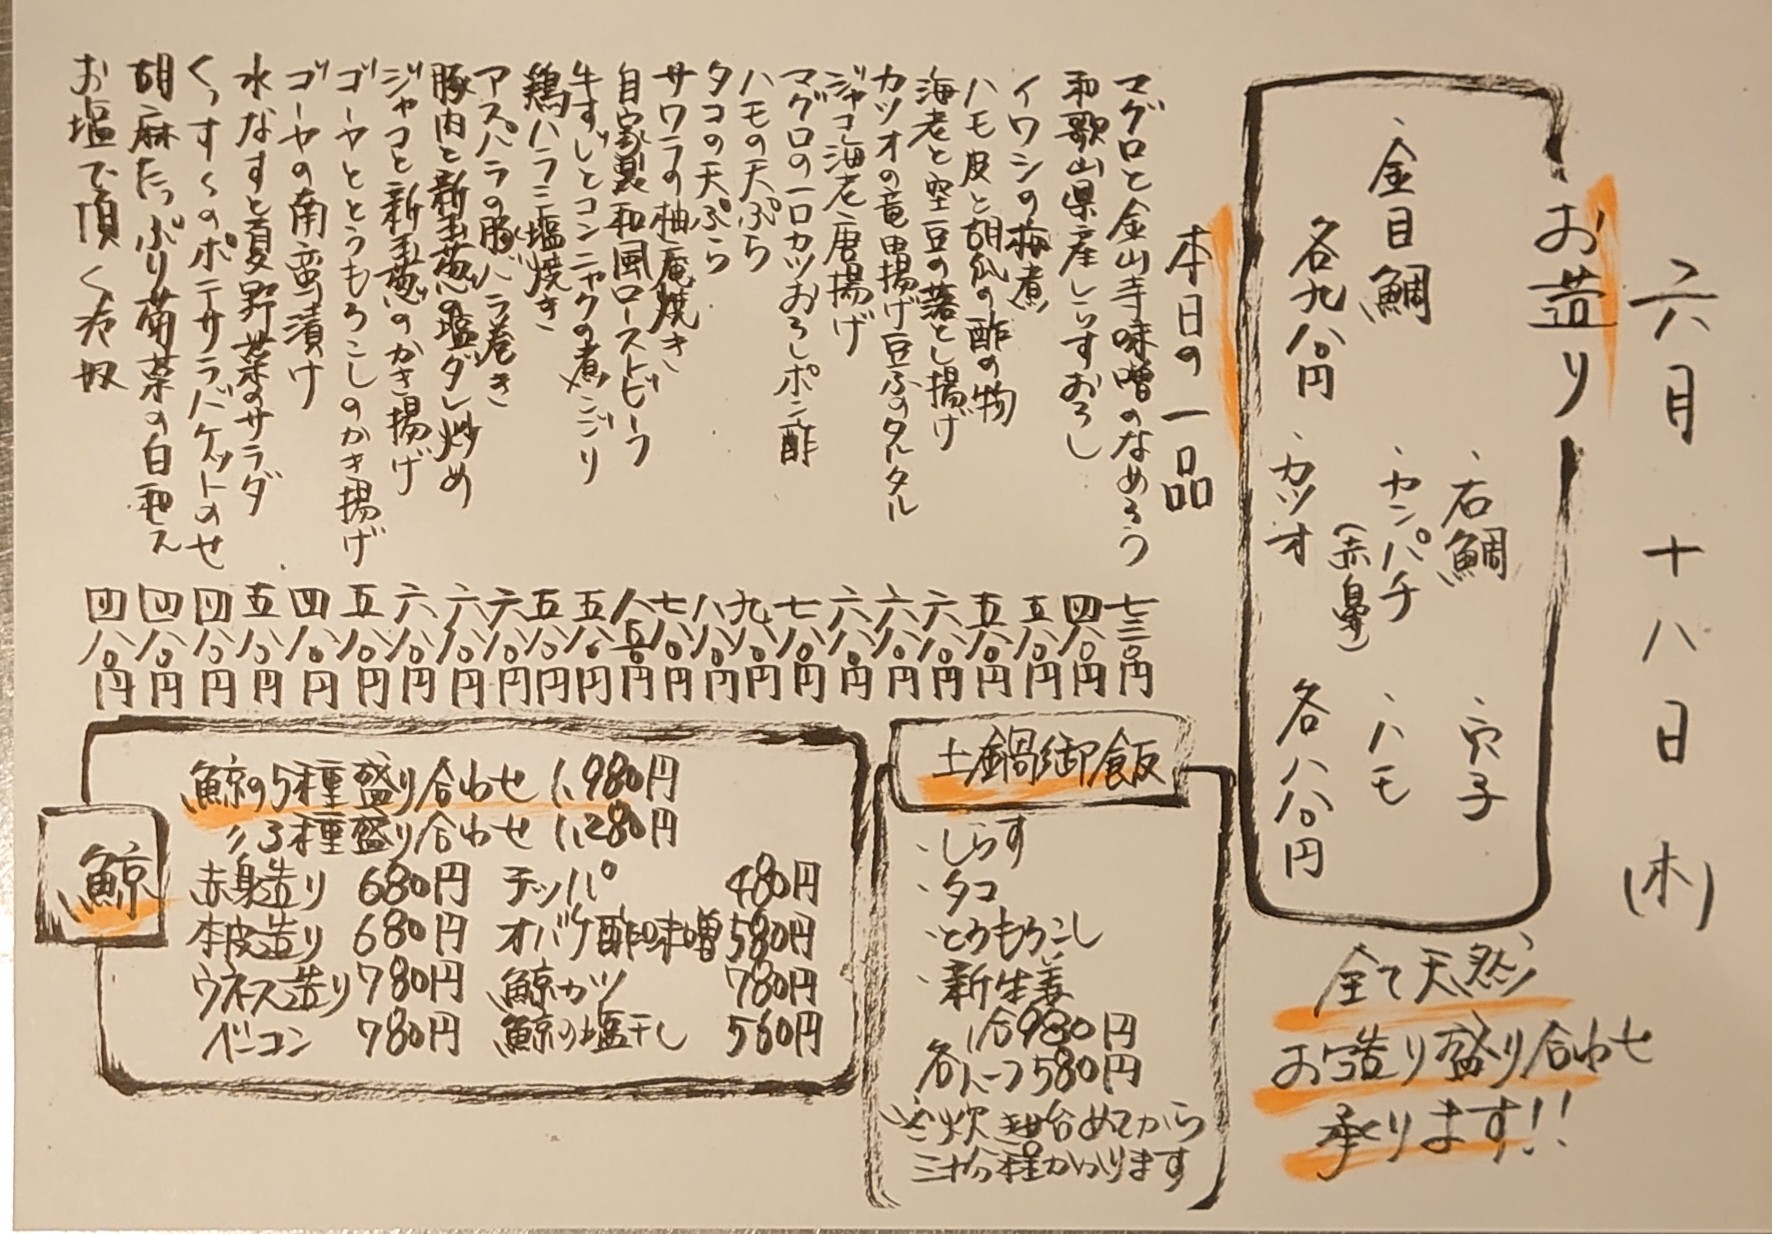 六月十八日(木)
お造り
・石鯛 ・穴子
・金目鯛 ・カンパチ(赤鼻) ・ハモ
各九八〇円 ・カツオ 各八八〇円
全て天然
お造り盛り合わせ
承ります!!
本日の一品
マグロと金山寺味噌のなめろう 七三〇円
和歌山県産しらすおろし 四八〇円
イワシの梅煮 五八〇円
ハモ皮と胡瓜の酢の物 五八〇円
海老と空豆の落とし揚げ 六八〇円
カツオの竜田揚げ豆ふのタルタル 六八〇円
ジャコ海老唐揚げ 六八〇円
マグロの一口カツおろしポン酢 七八〇円
ハモの天ぷら 九八〇円
タコの天ぷら 八八〇円
サワラの柚庵焼き 七八〇円
自家製和風ローストビーフ 八五〇円
牛すじとコンニャクの煮こごり 五八〇円
鶏ハラミ塩焼き 五八〇円
アスパラの豚バラ巻き 六八〇円
豚肉と新玉葱の塩ダレ炒め 六八〇円
ジャコと新玉葱のかき揚げ 六八〇円
ゴーヤととうもろこしのかき揚げ 五八〇円
ゴーヤの南蛮漬け 四八〇円
水なすと夏野菜のサラダ 五八〇円
ポテサラバケットのせ 四八〇円
胡麻たっぷり菊菜の白和え 四八〇円
お塩で頂く冷奴 四八〇円
土鍋御飯
・しらす
・タコ
・とうもろこし
・新生姜
一合980円
各ハーフ580円
※炊き始めてから
三十分程かかります
鯨
鯨の5種盛り合わせ 1,980円
〃3種盛り合わせ 1,280円
赤身造り 680円 テッパ 480円
本皮造り 680円 オバケ酢味噌 580円
ウネス造り 780円 鯨カツ 780円
ベーコン 780円 鯨の塩干し 560円